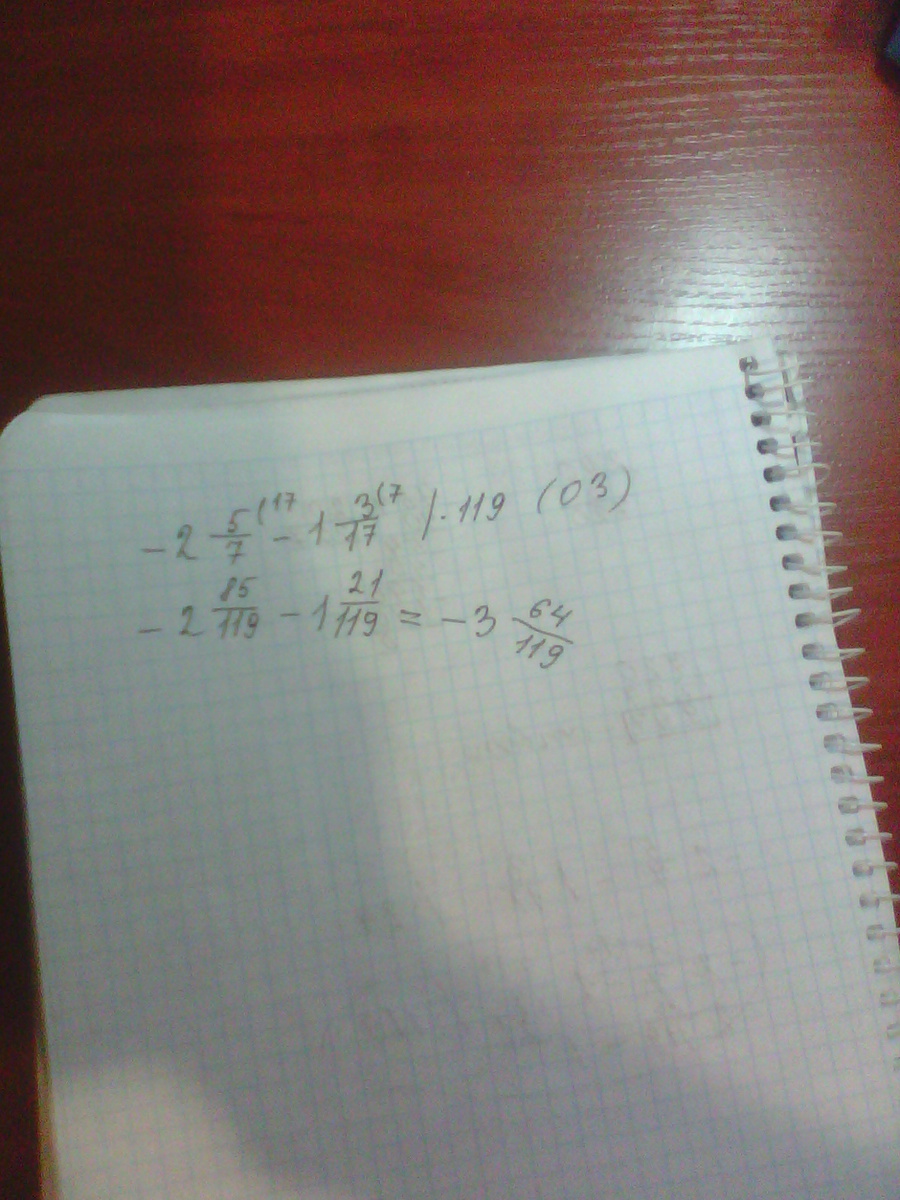 -2 5/7 (17 - 1 3/17 (7 | · 119 (03)
-2 85/119 - 1 21/119 = -3 64/119